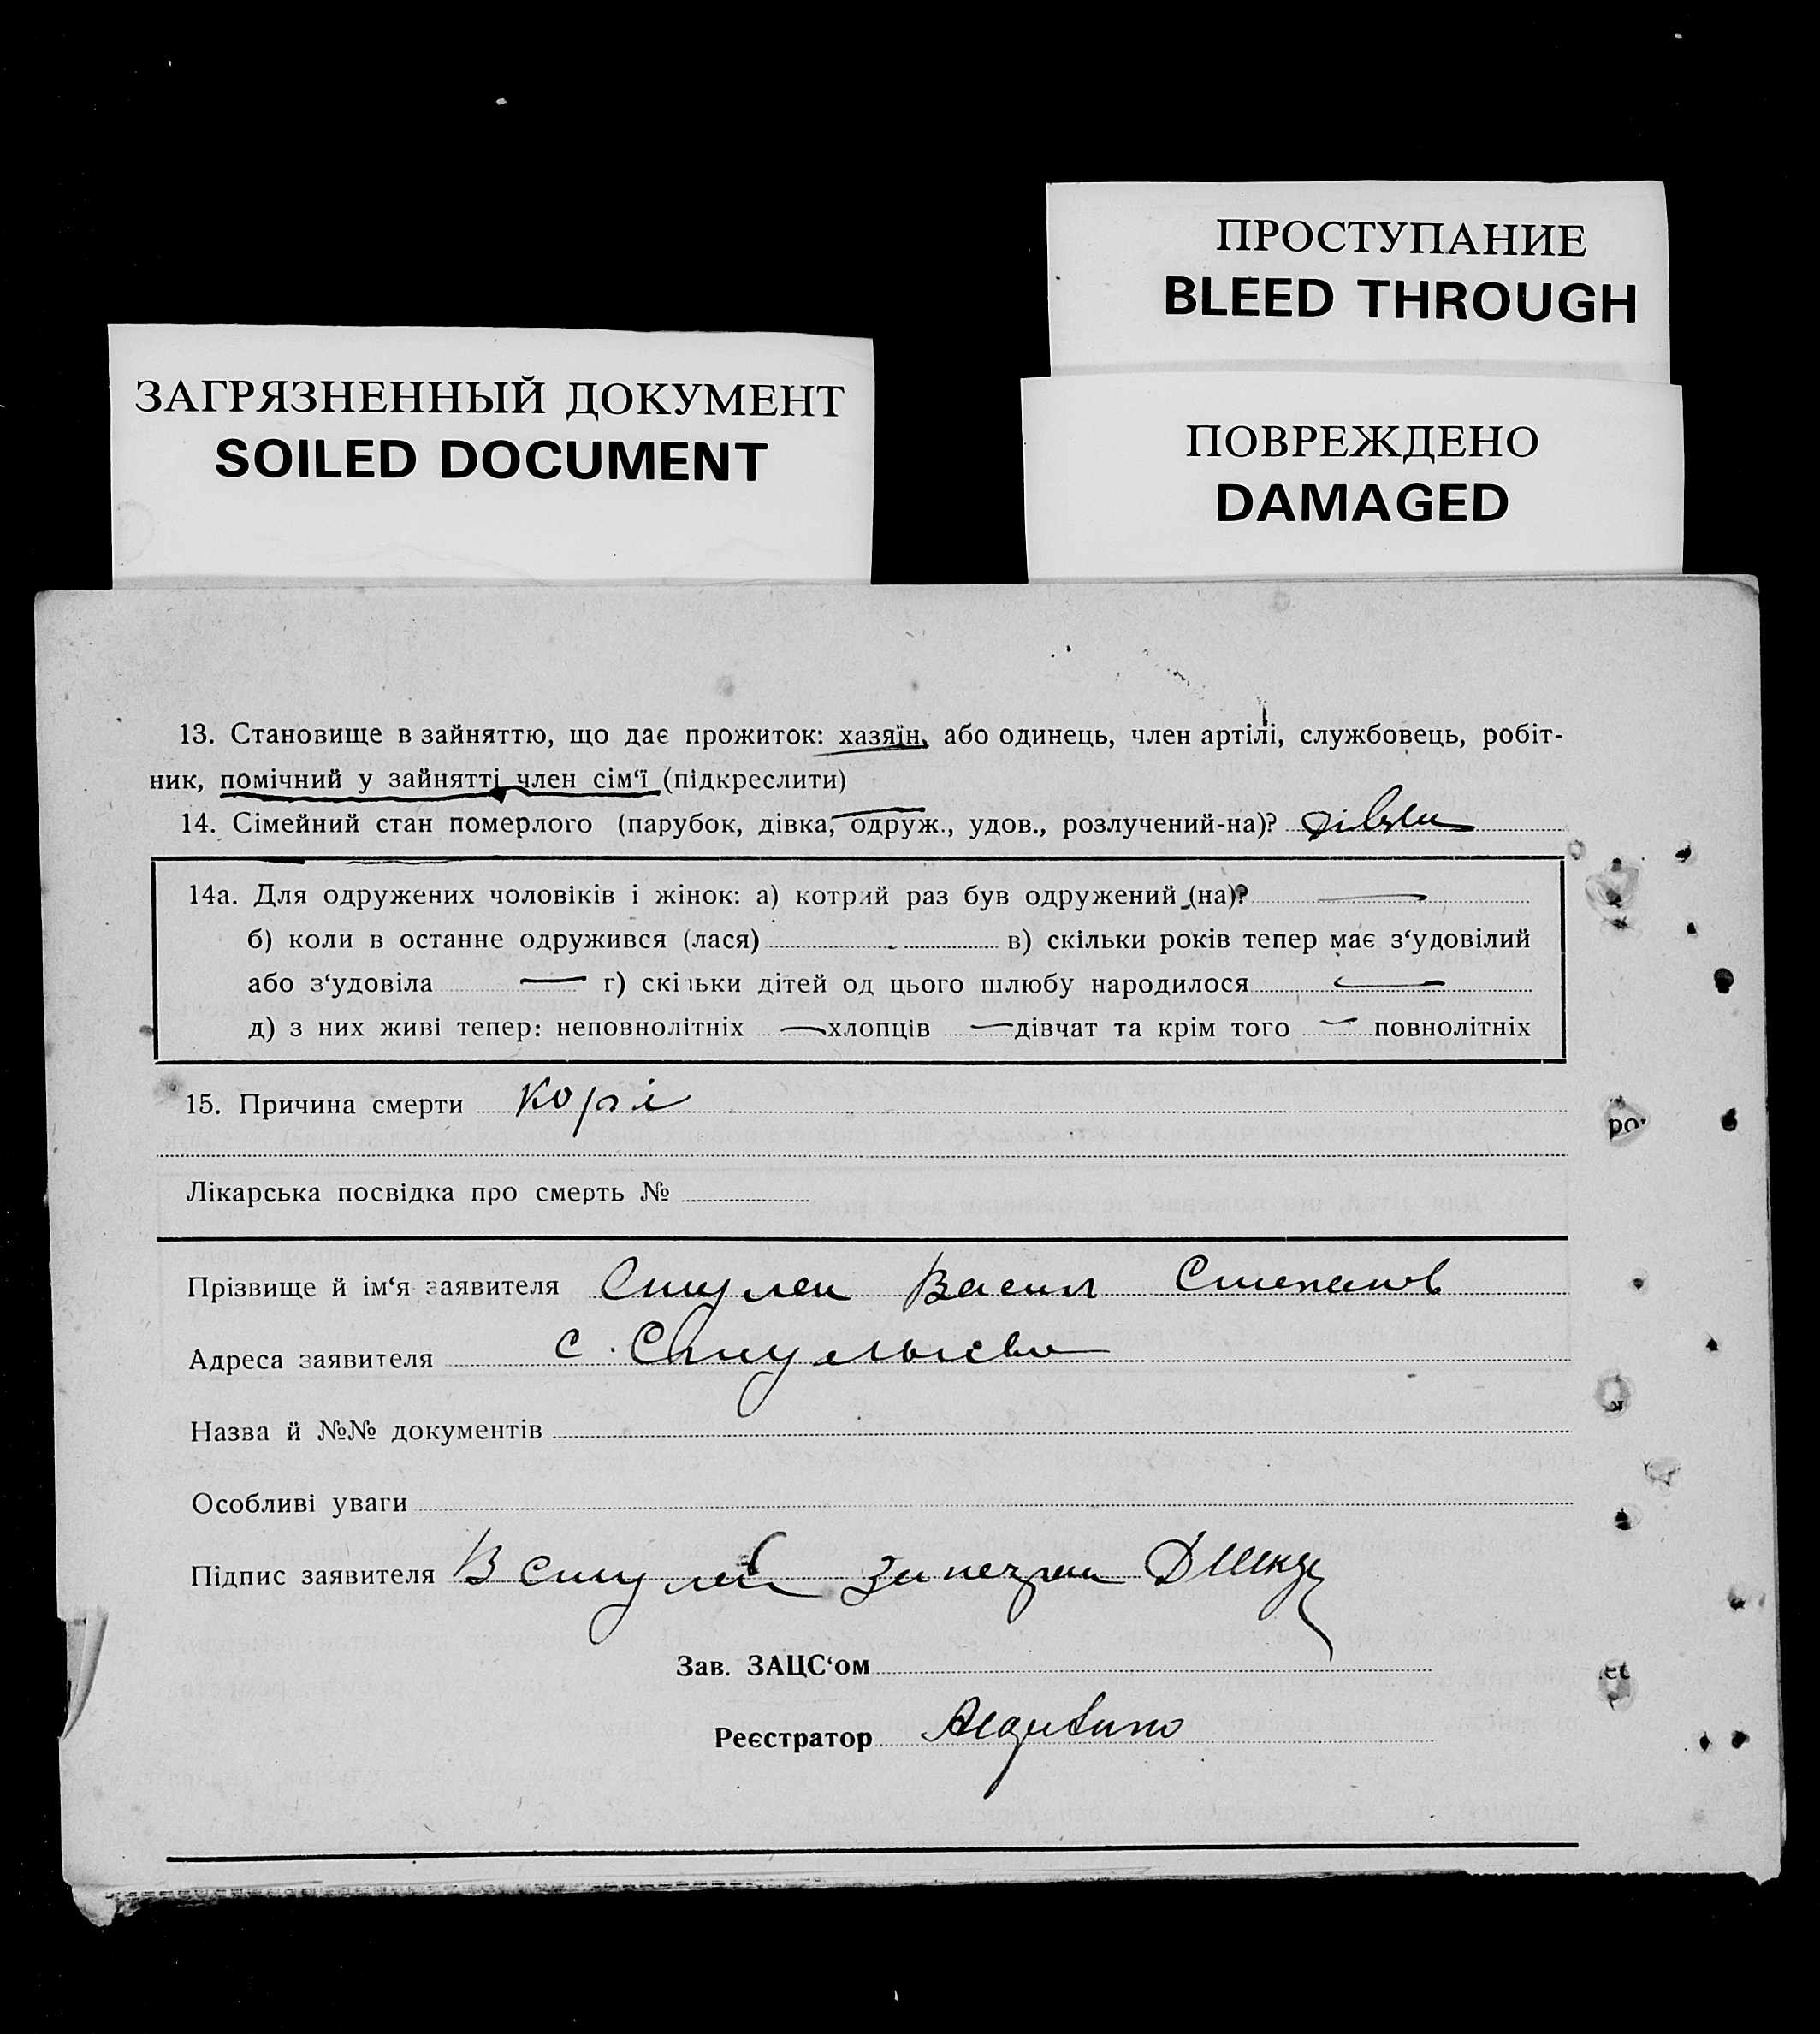 ПРОСТУПАНИЕ
BLEED THROUGH
ЗАГРЯЗНЕННЫЙ ДОКУМЕНТ
SOILED DOCUMENT
ПОВРЕЖДЕНО
DAMAGED
13. Становище в зайняттю, що дає прожиток: хазяїн, або одинець, член артілі, службовець, робіт-
ник, помічний у зайнятті член сім‘ї (підкреслити)
14. Сімейний стан померлого (парубок, дівка, одруж., удов., розлучений-на)? дівка
14а. Для одружених чоловіків і жінок: а) котрий раз був одружений (на)? —
б) коли в останне одружився (лася) в) скільки років тепер має з‘удовілий
або з‘удовіла — г) скільки дітей од цього шлюбу народилося —
д) з них живі тепер: неповнолітніх — хлопців — дівчат та крім того — повнолітніх
15. Причина смерти корі
Лікарська посвідка про смерть №
Прізвище й ім‘я заявителя Васил Степанов
Адреса заявителя с.
Назва й №№ документів
Особливі уваги
Підпис заявителя В
Зав. ЗАЦС‘ом
Реєстратор